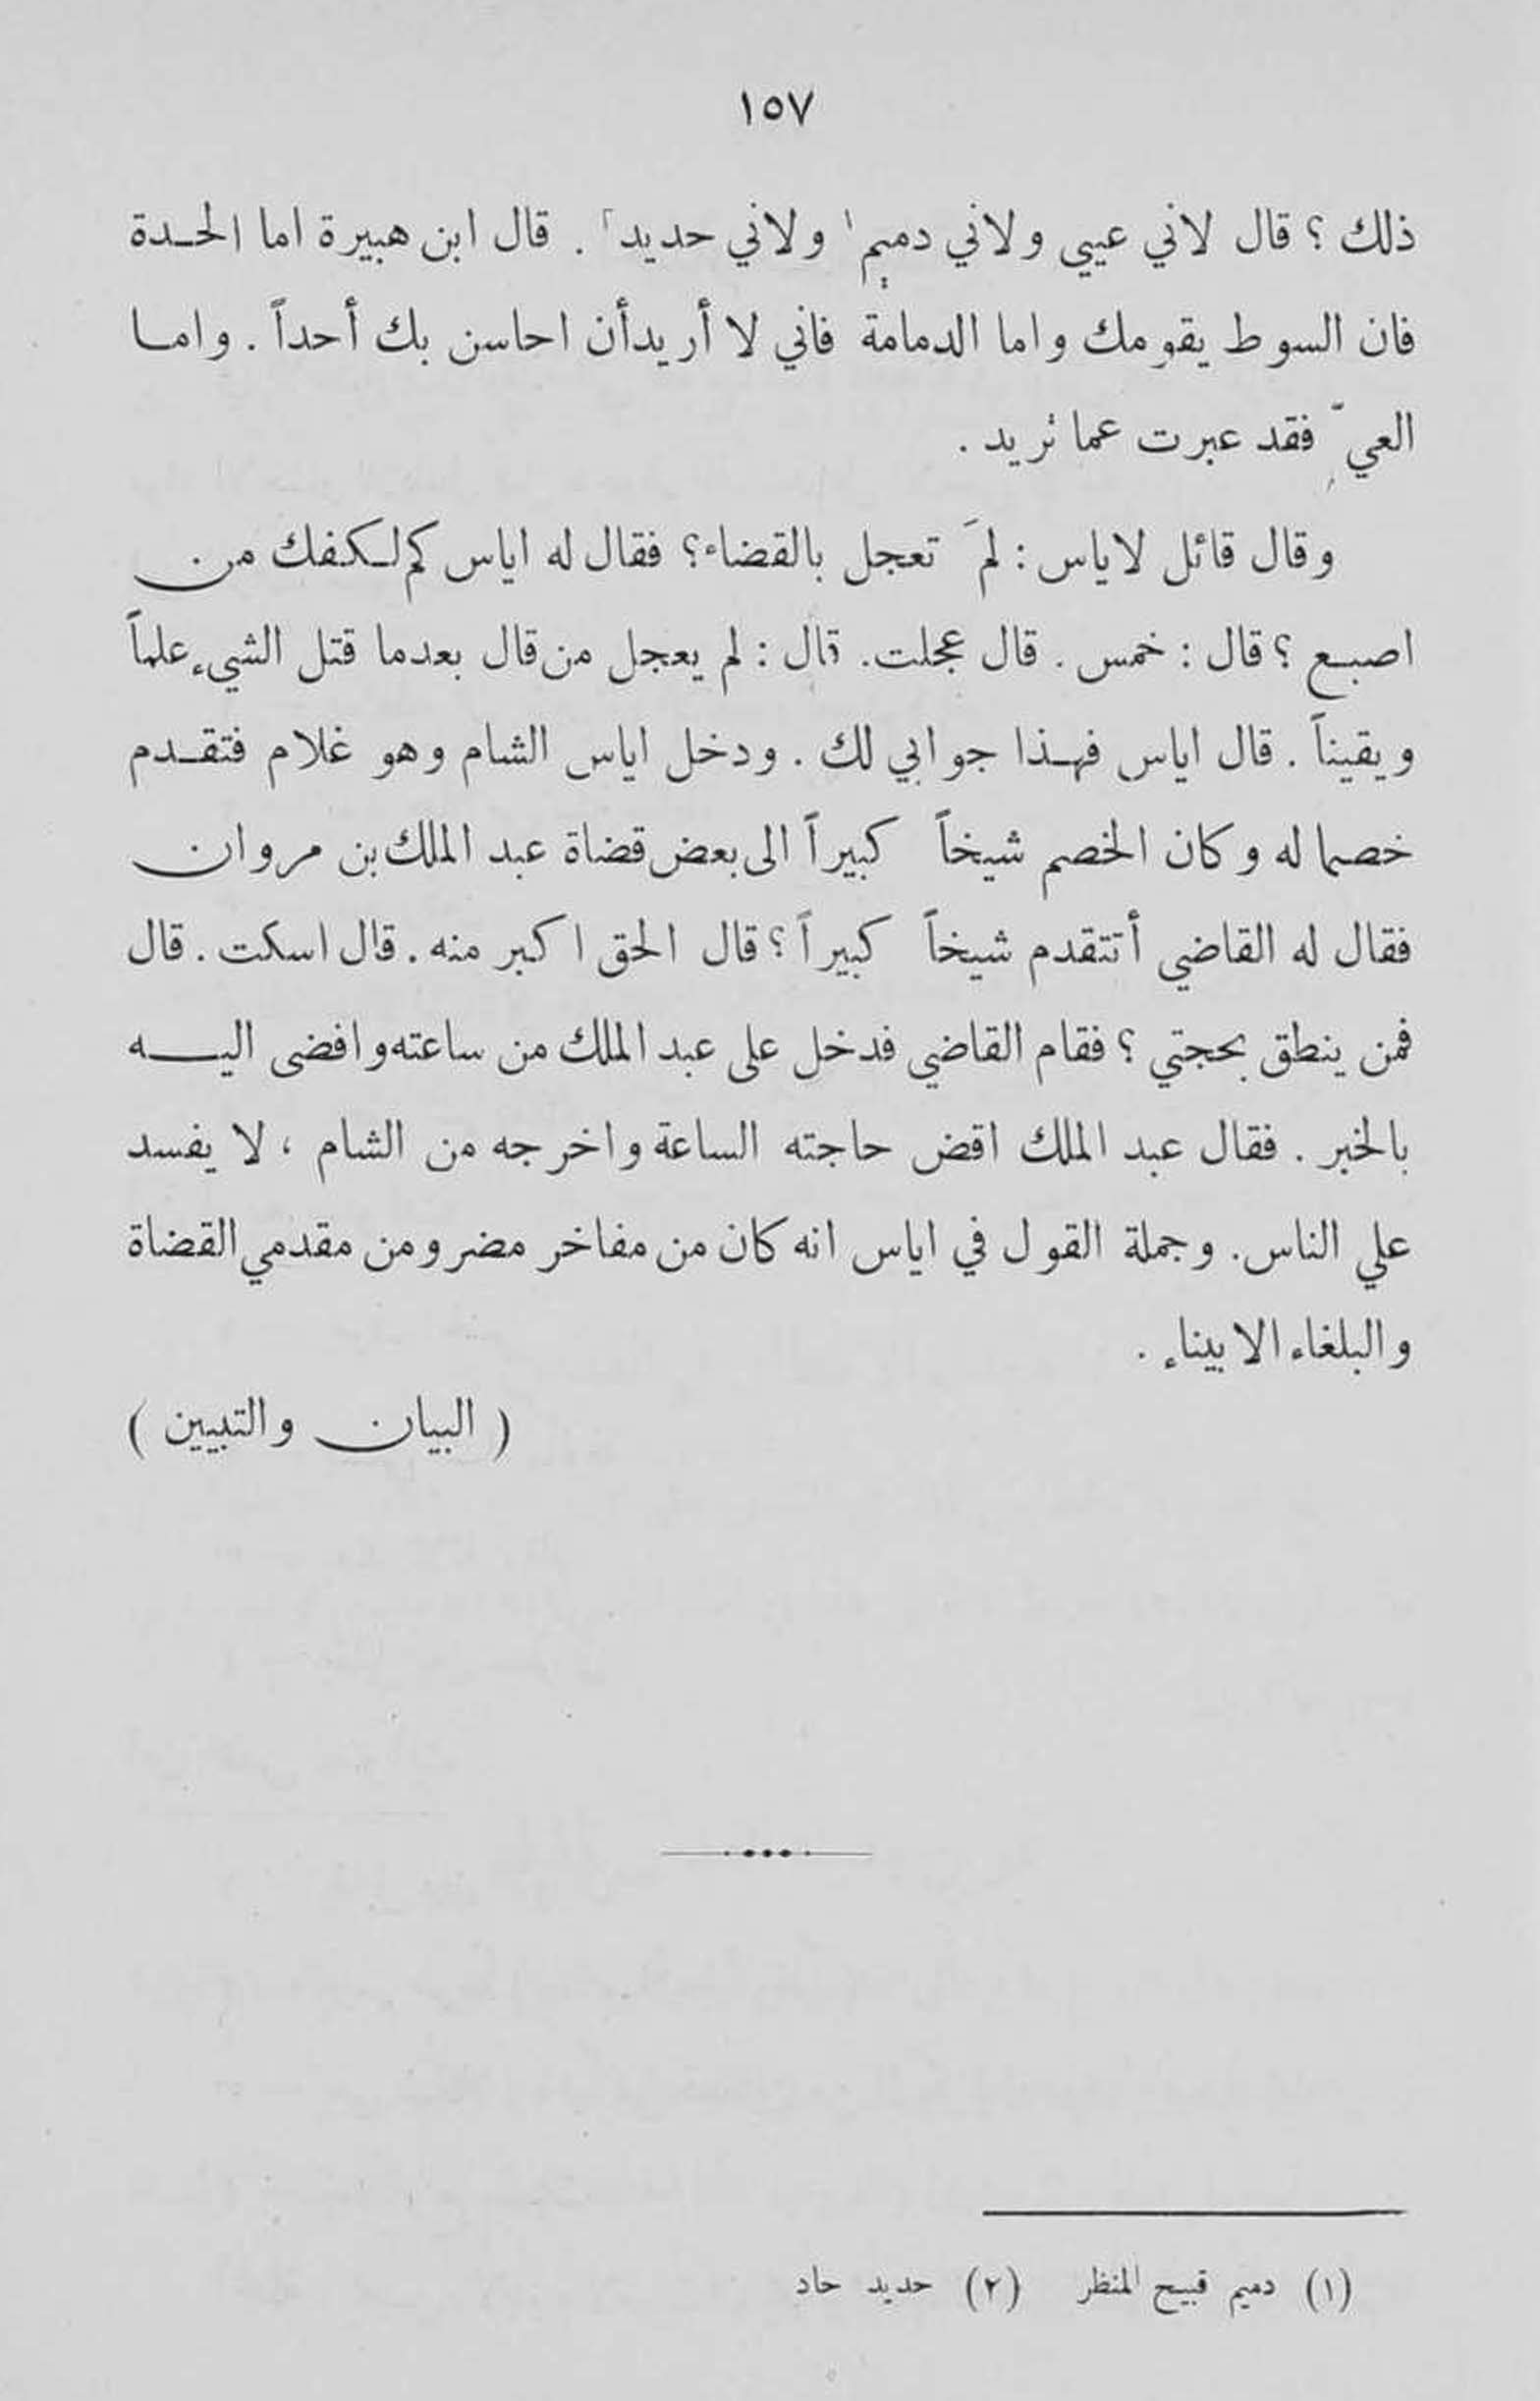 ١٥٧
ذلك ؟ قال لاني عيي ولاني دميم١ ولاني حديد٢ . قال ابن هبيرة اما الحدة
فان السوط يقومك واما الدمامة فاني لا أريد أن احاسن بك أحداً . واما
العيّ فقد عبرت عما تريد .
وقال قائل لاياس : لمَ تعجل بالقضاء؟ فقال له اياس كم لكفك من
اصبع ؟ قال : خمس . قال عجلت . قال : لم يعجل من قال بعدما قتل الشيء علماً
ويقيناً . قال اياس فهذا جوابي لك . ودخل اياس الشام وهو غلام فتقدم
خصما له وكان الخصم شيخاً كبيراً الى بعض قضاة عبد الملك بن مروان
فقال له القاضي أتتقدم شيخاً كبيراً ؟ قال الحق اكبر منه . قال اسكت . قال
فمن ينطق بحجتي ؟ فقام القاضي فدخل على عبد الملك من ساعته وافضى اليه
بالخبر . فقال عبد الملك اقض حاجته الساعة واخرجه من الشام ، لا يفسد
علي الناس . وجملة القول في اياس انه كان من مفاخر مضر ومن مقدمي القضاة
والبلغاء الابيناء .
( البيان والتبيين )
(١) دميم قبيح المنظر (٢) حديد حاد